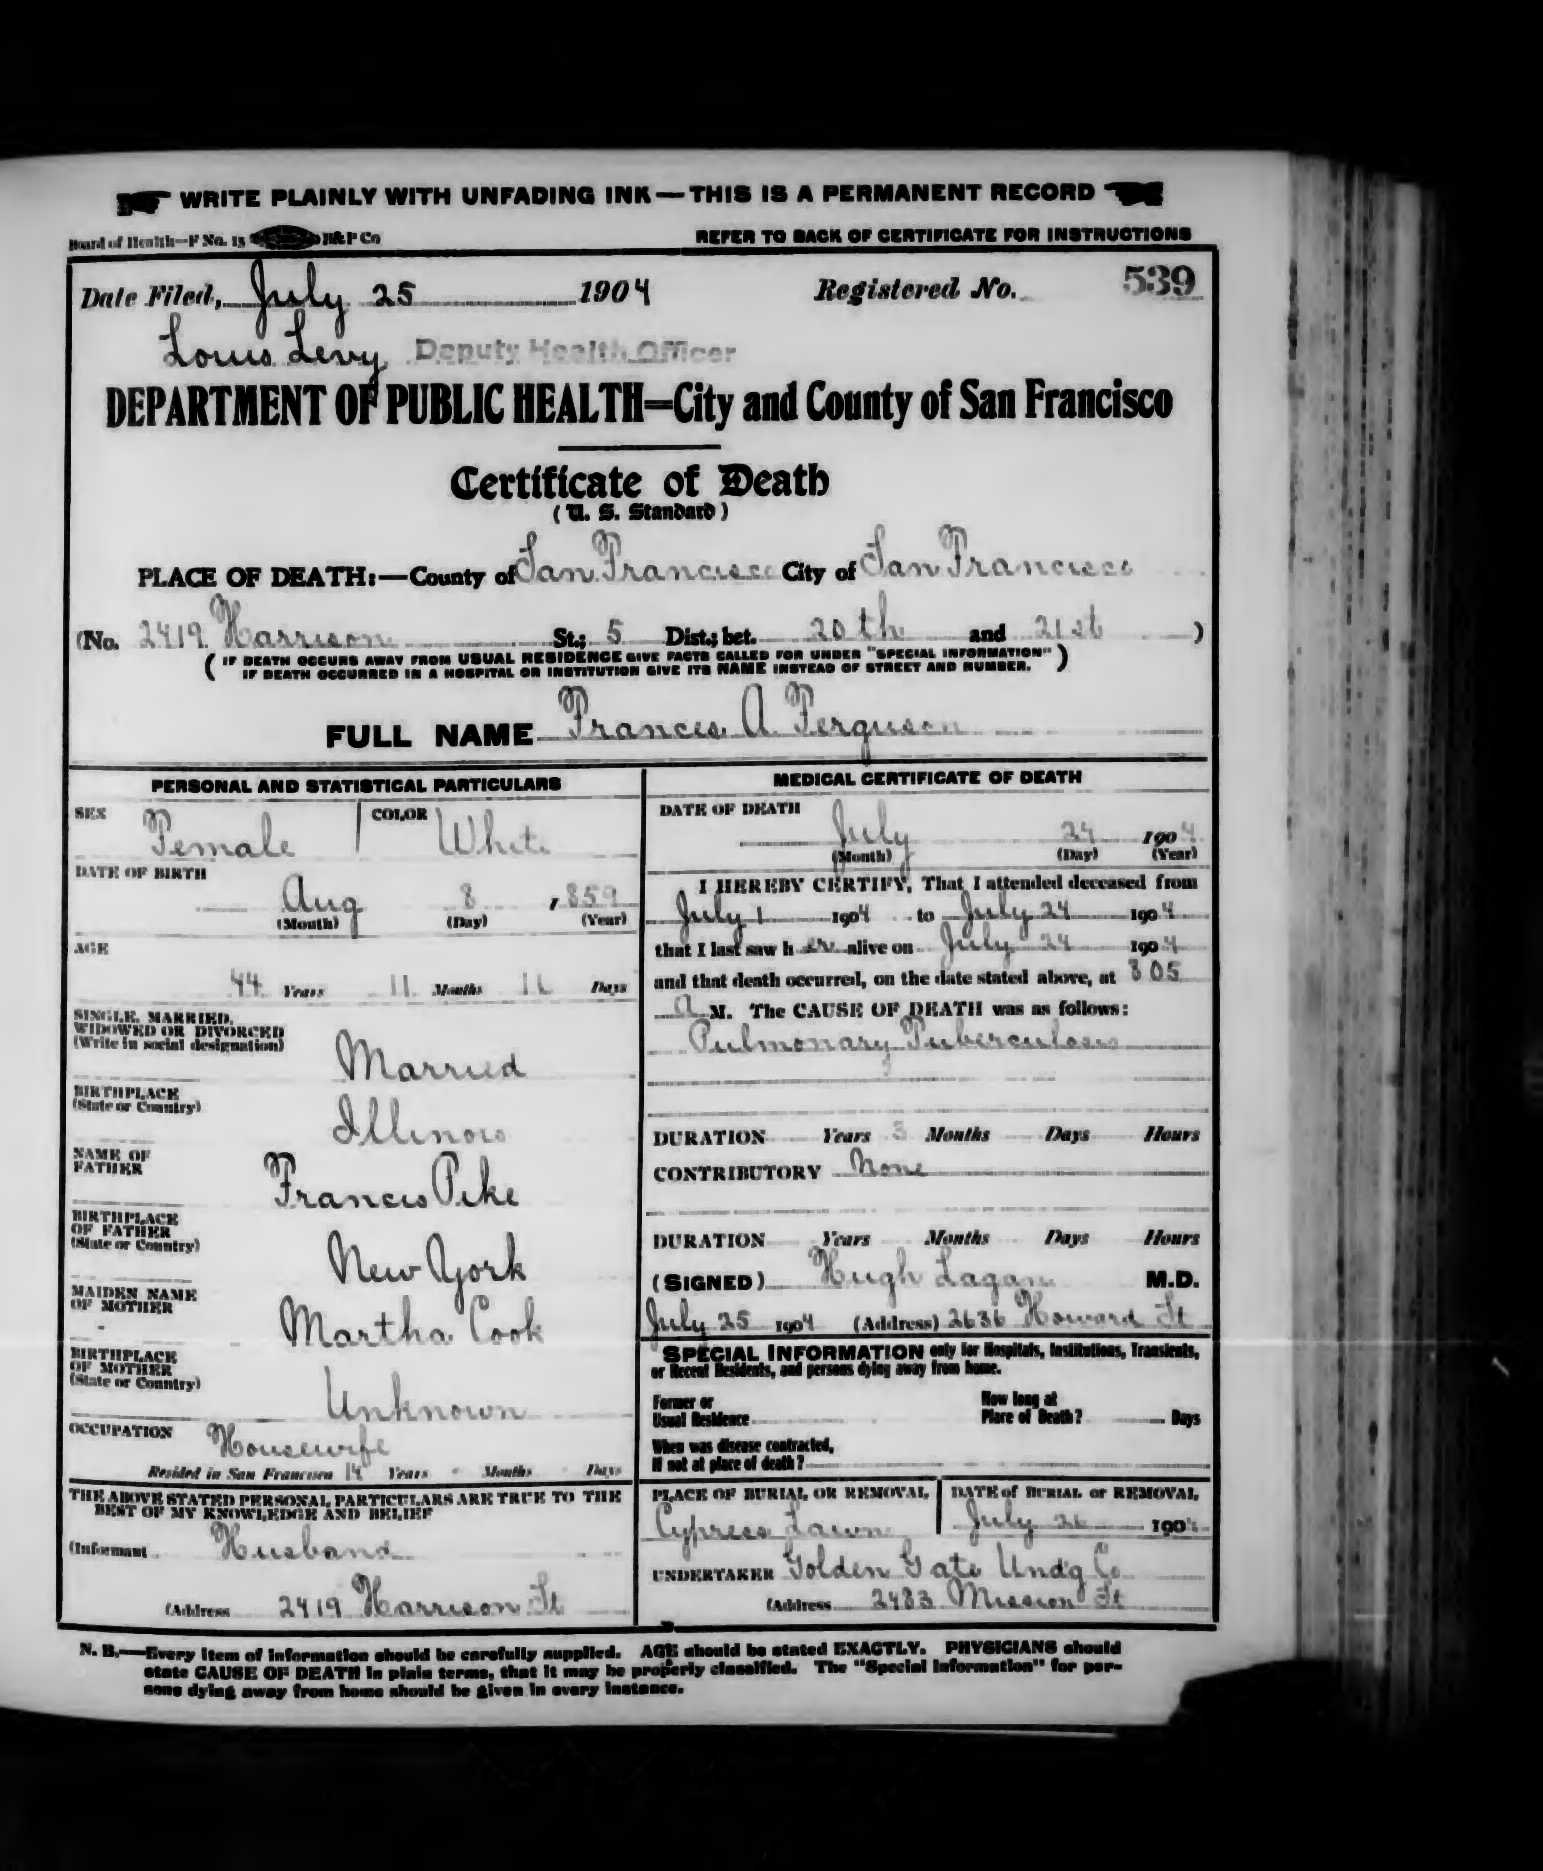 WRITE PLAINLY WITH UNFADING INK — THIS IS A PERMANENT RECORD
Board of Health—F No. 15 B&P Co REFER TO BACK OF CERTIFICATE FOR INSTRUCTIONS
Date Filed, July 25 1904 Registered No. 539
Louis Levy Deputy Health Officer
DEPARTMENT OF PUBLIC HEALTH=City and County of San Francisco
Certificate of Death
(U. S. Standard)
PLACE OF DEATH:—County of San Francisco City of San Francisco
(No. 2419 Harrison St.; 5 Dist.; bet. 20th and 21st )
( IF DEATH OCCURS AWAY FROM USUAL RESIDENCE GIVE FACTS CALLED FOR UNDER "SPECIAL INFORMATION" )
IF DEATH OCCURRED IN A HOSPITAL OR INSTITUTION GIVE ITS NAME INSTEAD OF STREET AND NUMBER.
FULL NAME Frances A. Ferguson
PERSONAL AND STATISTICAL PARTICULARS
SEX Female COLOR White
DATE OF BIRTH
Aug 8 , 859
(Month) (Day) (Year)
AGE
44 Years 11 Months Days
SINGLE, MARRIED,
WIDOWED OR DIVORCED
(Write in social designation)
Married
BIRTHPLACE
(State or Country)
Illinois
NAME OF
FATHER
Francis Pike
BIRTHPLACE
OF FATHER
(State or Country)
New York
MAIDEN NAME
OF MOTHER
Martha Cook
BIRTHPLACE
OF MOTHER
(State or Country)
Unknown
OCCUPATION Housewife
Resided in San Francisco 14 Years - Months - Days
THE ABOVE STATED PERSONAL PARTICULARS ARE TRUE TO THE
BEST OF MY KNOWLEDGE AND BELIEF
(Informant Husband
(Address 2419 Harrison St
MEDICAL CERTIFICATE OF DEATH
DATE OF DEATH
July 24 1904
(Month) (Day) (Year)
I HEREBY CERTIFY, That I attended deceased from
July 1 1904 to July 24 1904
that I last saw her alive on July 24 1904
and that death occurred, on the date stated above, at 8 05
A M. The CAUSE OF DEATH was as follows:
Pulmonary Tuberculosis
DURATION Years 3 Months Days Hours
CONTRIBUTORY None
DURATION Years Months Days Hours
(SIGNED) Hugh Lagan M.D.
July 25 1904 (Address) 2636 Howard St
SPECIAL INFORMATION only for Hospitals, Institutions, Transients,
or Recent Residents, and persons dying away from home.
Former or
Usual Residence
How long at
Place of Death? Days
When was disease contracted,
If not at place of death?
PLACE OF BURIAL OR REMOVAL
Cypress Lawn
DATE of BURIAL or REMOVAL
July 26 1904
UNDERTAKER Golden Gate Und'g Co
(Address 2483 Mission St
N. B.—Every item of information should be carefully supplied. AGE should be stated EXACTLY. PHYSICIANS should
state CAUSE OF DEATH in plain terms, that it may be properly classified. The "Special Information" for per-
sons dying away from home should be given in every instance.